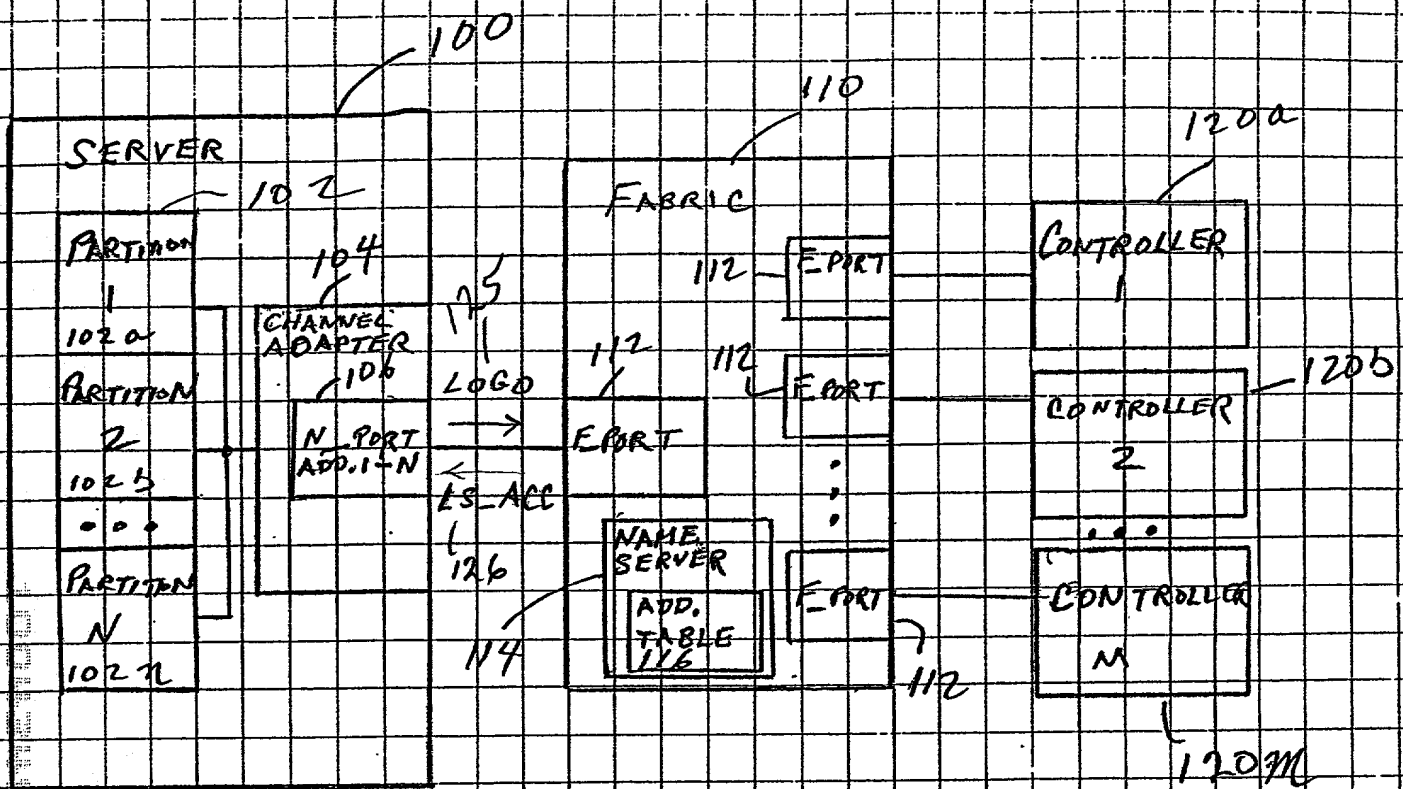 100
SERVER
102
PARTITION
1
102a
PARTITION
2
102b
• • •
PARTITION
N
102n
104
CHANNEL
ADAPTER
106
N_PORT
ADD. 1-N
125
LOGO
LS_ACC
126
110
FABRIC
112
F_PORT
112
F_PORT
112
F_PORT
NAME
SERVER
ADD.
TABLE
116
114
F_PORT
112
120a
CONTROLLER
1
120b
CONTROLLER
2
• • •
CONTROLLER
M
120m